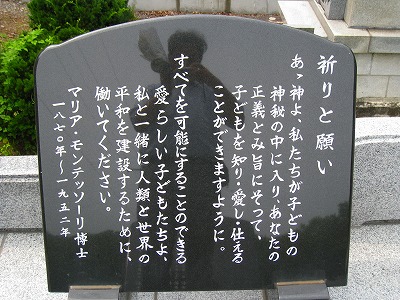 祈りと願い
あゝ神よ、私たちが子どもの
神秘の中に入り、あなたの
正義とみ旨にそって、
子どもを知り・愛し・仕える
ことができますように。
すべてを可能にすることのできる
愛らしい子どもたちよ、
私と一緒に人類と世界の
平和を建設するために、
働いてください。
マリア・モンテッソーリ博士
一八七〇年～一九五二年